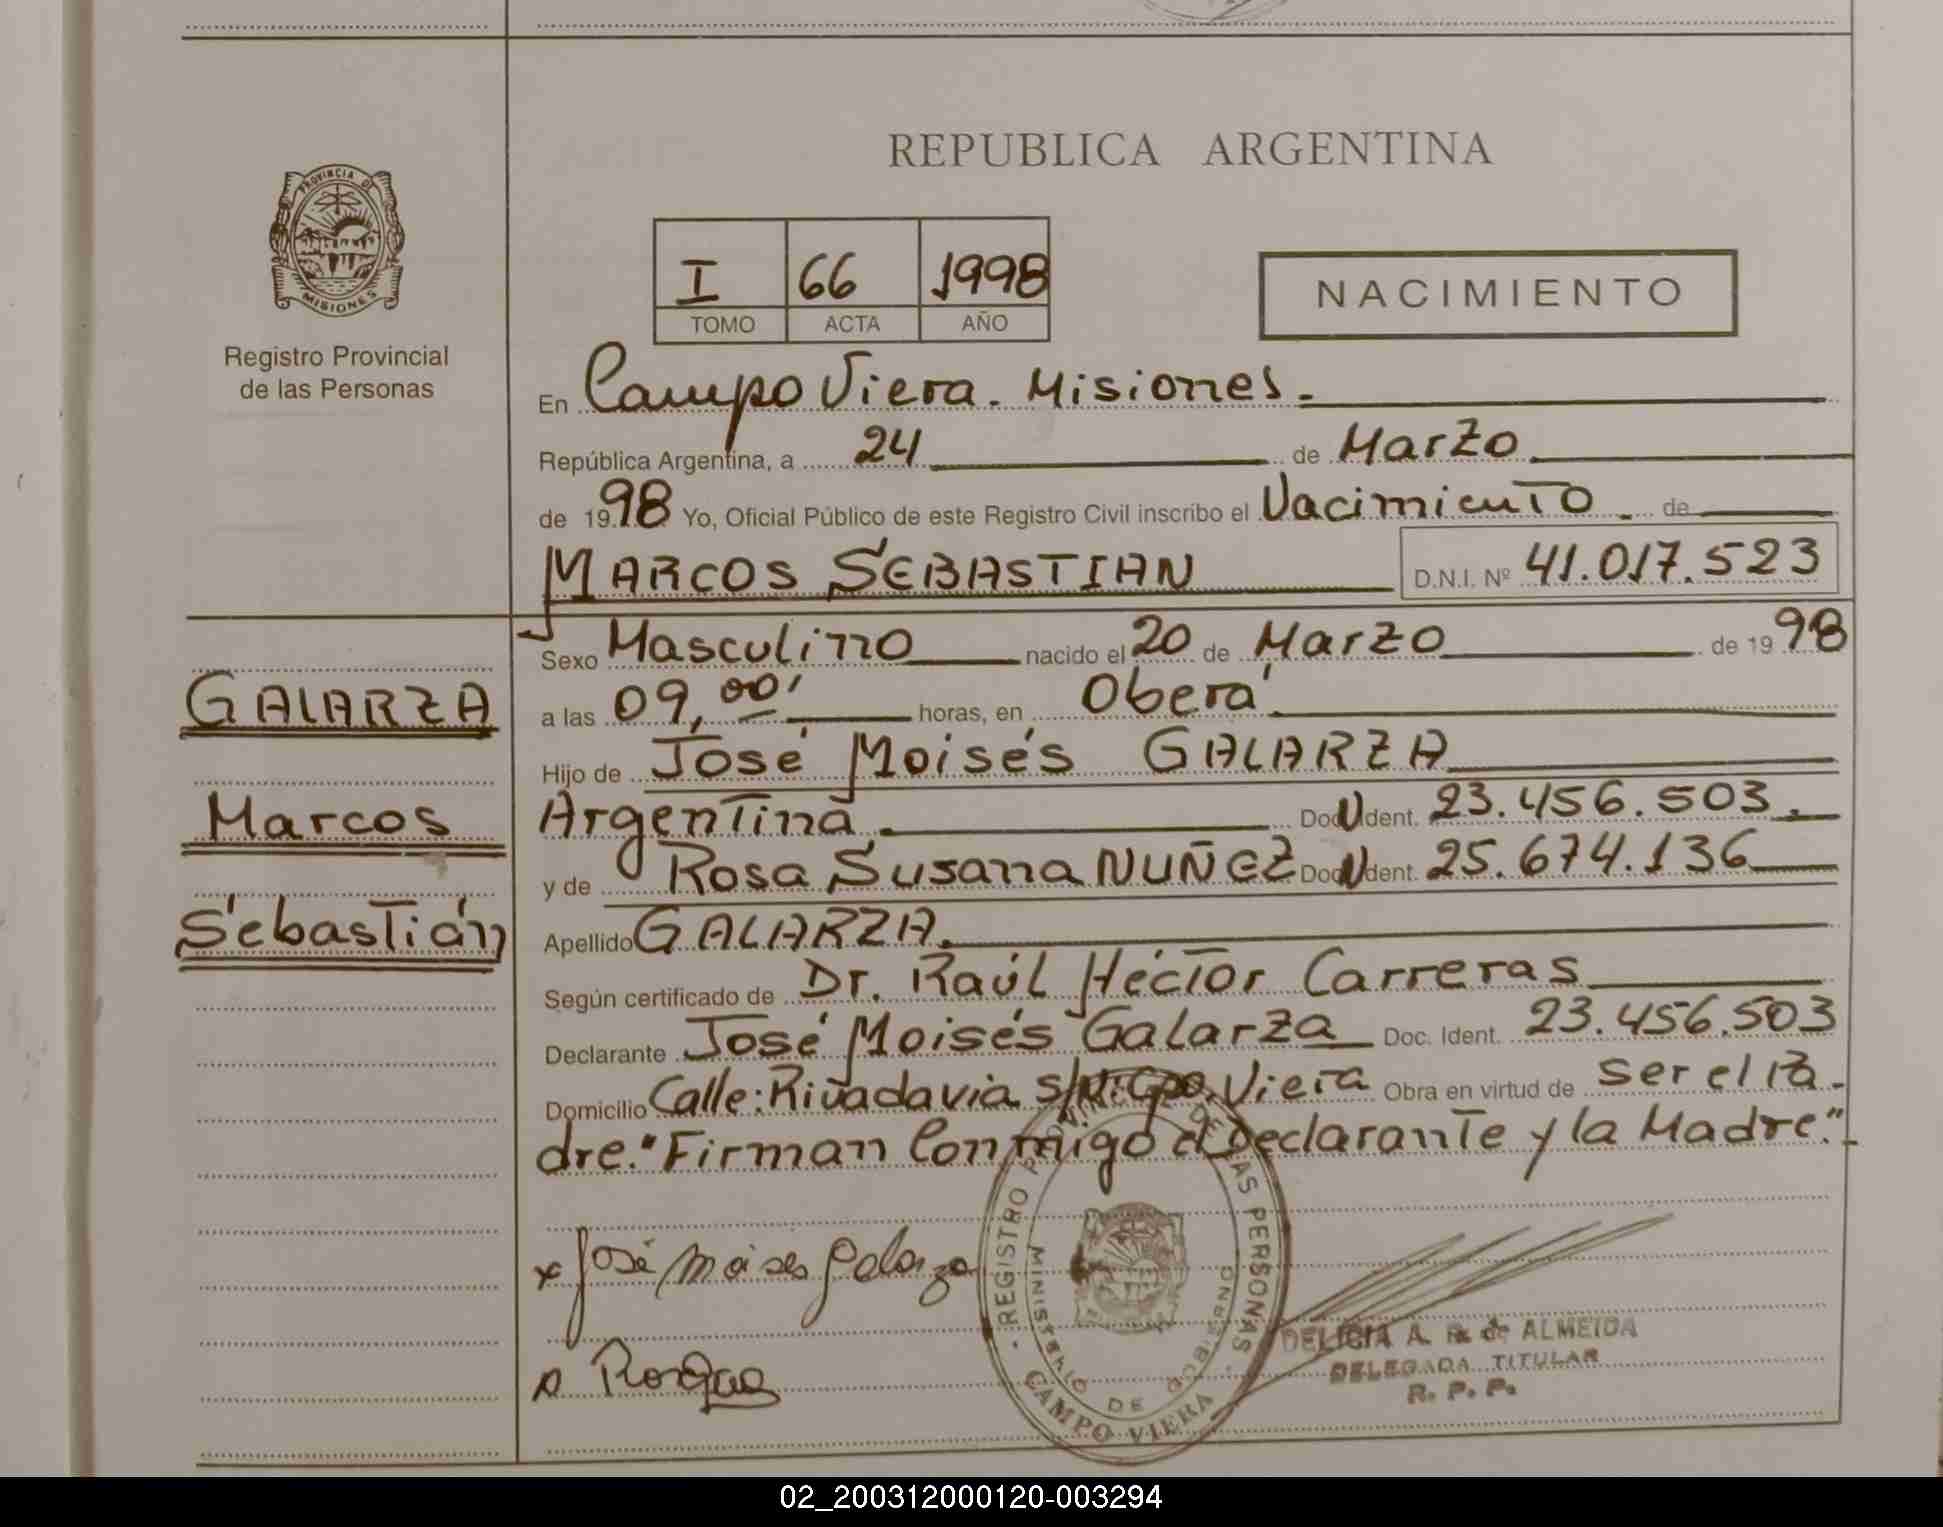 REPUBLICA ARGENTINA
PROVINCIA DE
MISIONES
Registro Provincial
de las Personas
I 66 1998
TOMO ACTA AÑO
NACIMIENTO
En Campo Viera. Misiones.
República Argentina, a 24 de Marzo
de 1998 Yo, Oficial Público de este Registro Civil inscribo el Nacimiento de
MARCOS SEBASTIAN D.N.I. Nº 41.017.523
Sexo Masculino nacido el 20 de Marzo de 1998
GALARZA
a las 09,00' horas, en Oberá
Hijo de José Moisés GALARZA
Marcos
Argentina Doc. Ident. 23.456.503.
y de Rosa Susana NUÑEZ Doc. Ident. 25.674.136
Sebastián
Apellido GALARZA.
Según certificado de Dr. Raúl Héctor Carreras
Declarante José Moisés Galarza Doc. Ident. 23.456.503
Domicilio Calle: Rivadavia s/N. Cpo. Viera Obra en virtud de ser el Pa-
dre. "Firman Conmigo el Declarante y la Madre."
x José Moises Galarza
REGISTRO PROVINCIAL DE LAS PERSONAS
MINISTERIO DE GOBIERNO
CAMPO VIERA
DELICIA A. R. de ALMEIDA
DELEGADA TITULAR
R. P. P.
02_200312000120-003294